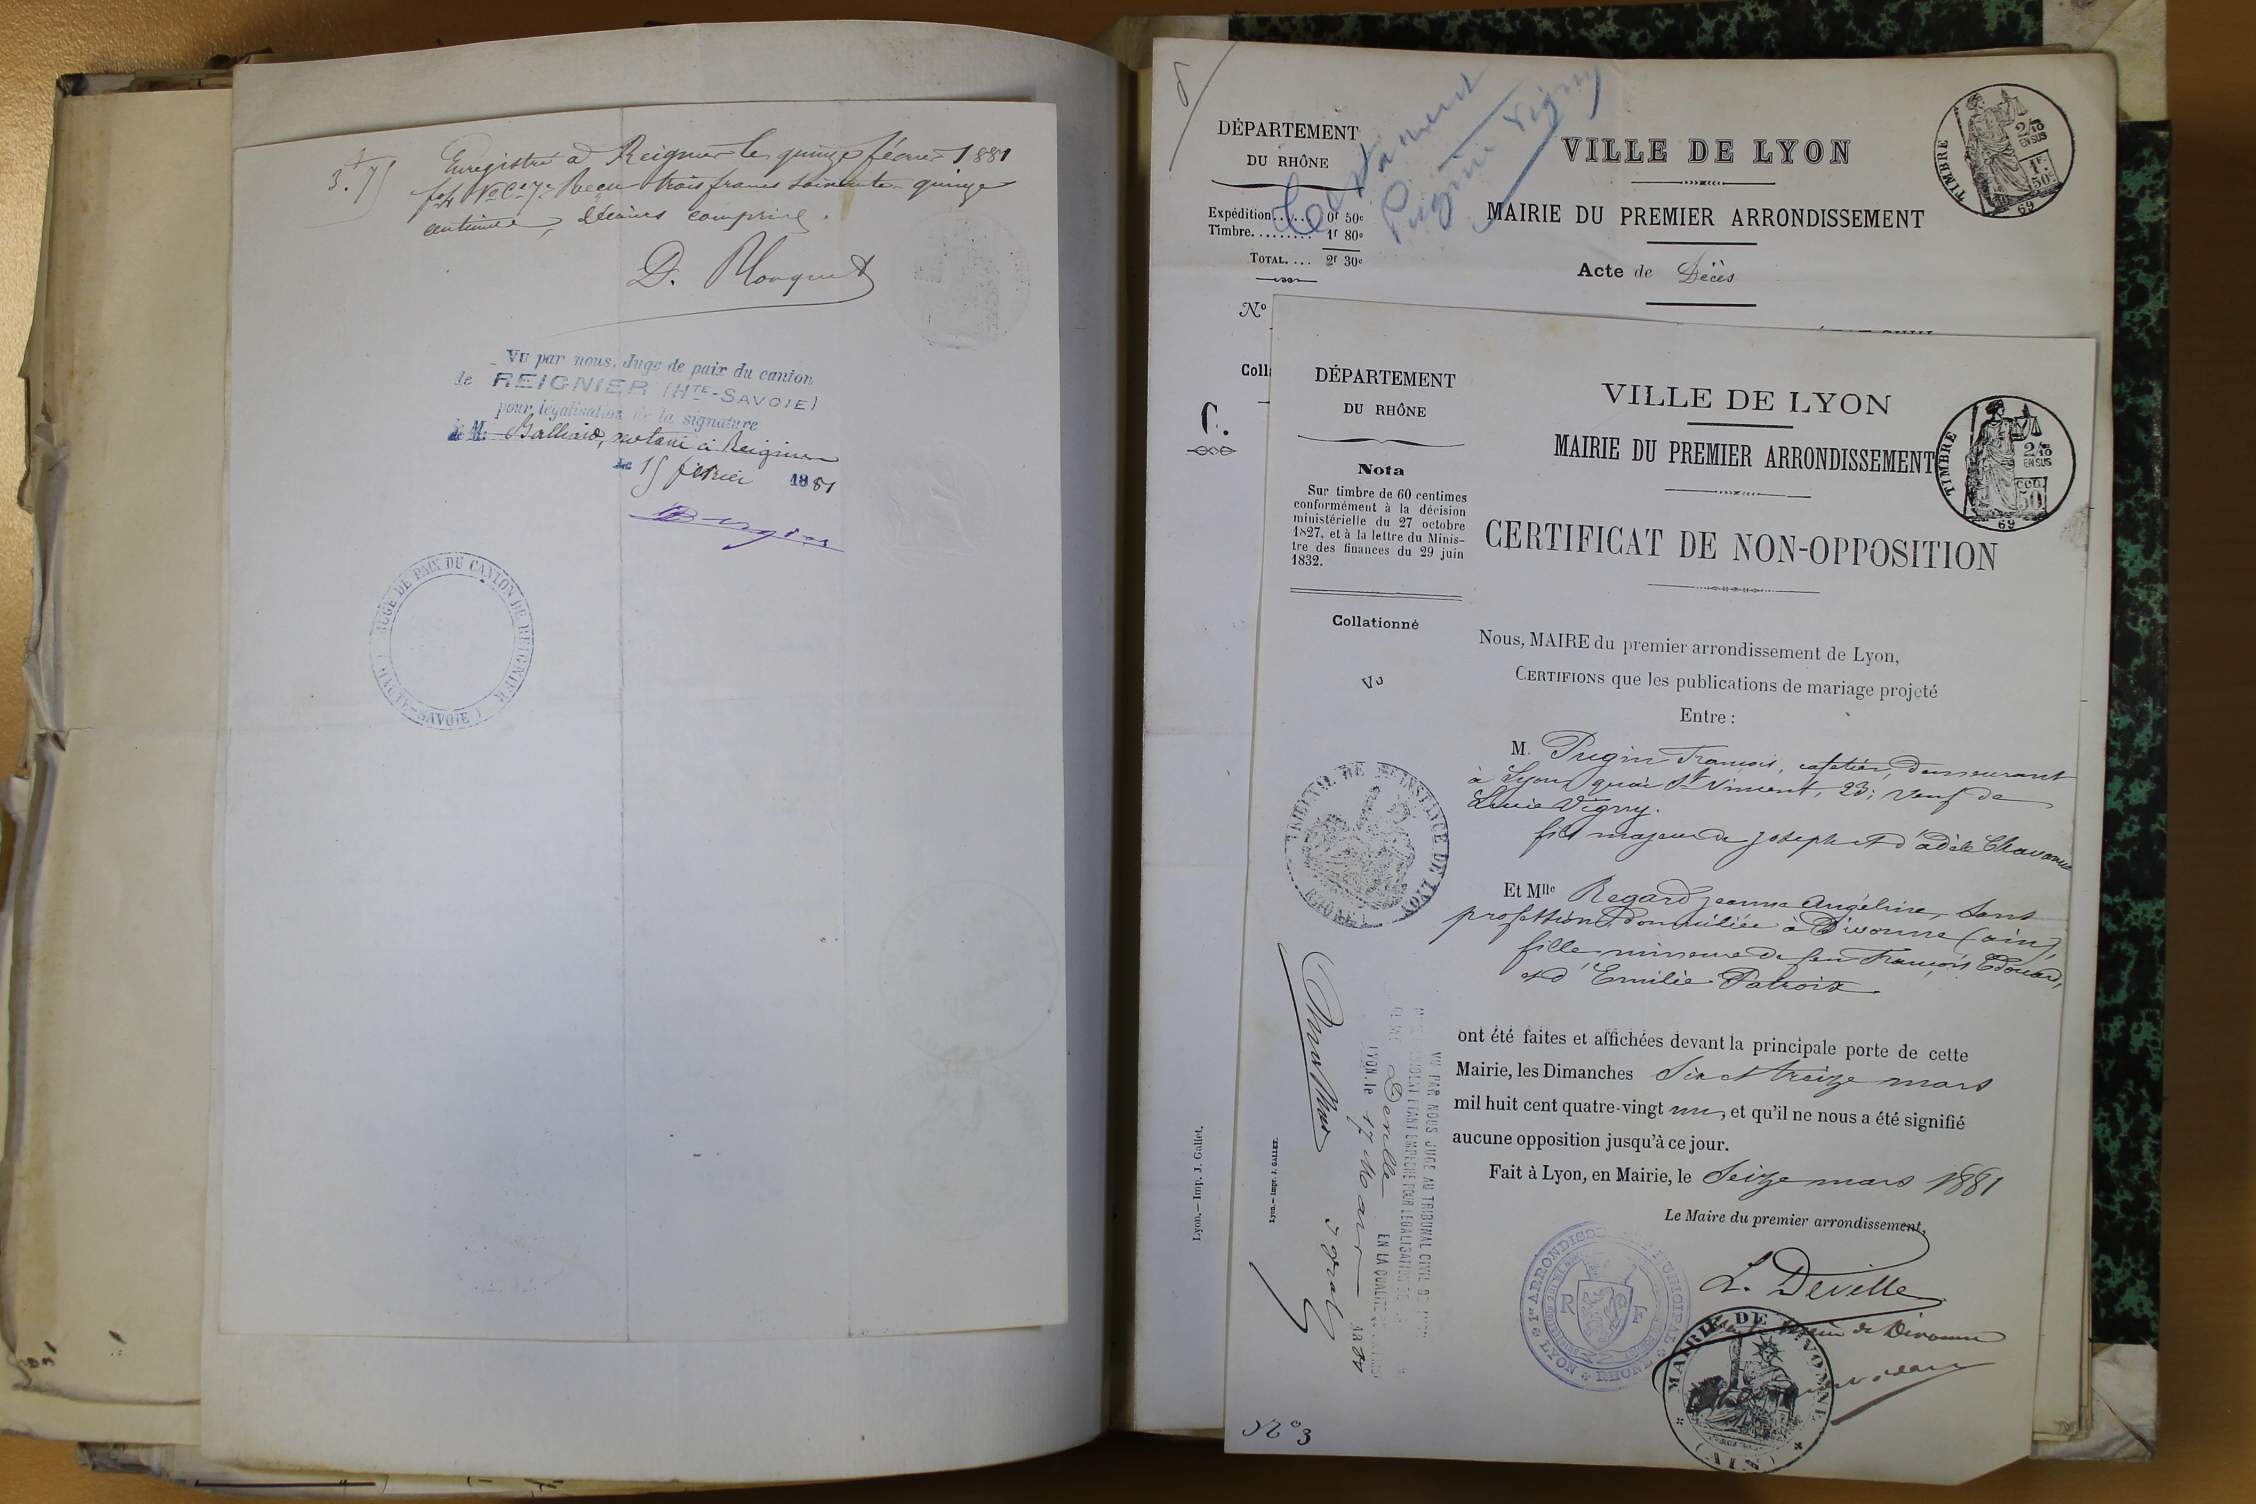 3.75
Enregistré à Reignier le quinze février 1881
fo 4 No Ce 7e Reçu trois francs soixante quinze
centimes, décimes compris.
Vu par nous, Juge de paix du canton
de REIGNIER (HTE-SAVOIE)
pour légalisation de la signature
de M. notaire à Reignier
le 15 février 1881
JUGE DE PAIX DU CANTON DE REIGNIER
(HAUTE-SAVOIE)
DÉPARTEMENT
DU RHÔNE
Expédition...... 0f 50c
Timbre......... 1f 80c
TOTAL.... 2f 30c
No
Coll
C.
Pugin Vigny
VILLE DE LYON
MAIRIE DU PREMIER ARRONDISSEMENT
Acte de Décès
TIMBRE
2/10
EN SUS
1F
50c
69
Lyon.— Imp. J. Gallet.
DÉPARTEMENT
DU RHÔNE
Nota
Sur timbre de 60 centimes
conformément à la décision
ministérielle du 27 octobre
1827, et à la lettre du Minis-
tre des finances du 29 juin
1832.
Collationné
VILLE DE LYON
MAIRIE DU PREMIER ARRONDISSEMENT
TIMBRE
2/10
EN SUS
50
69
CERTIFICAT DE NON-OPPOSITION
Nous, MAIRE du premier arrondissement de Lyon,
CERTIFIONS que les publications de mariage projeté
Entre :
M. Pugin François, cafetier, demeurant
à Lyon quai St Vincent, 23; veuf de
Lucie Vigny.
fils majeur de Joseph et d'adèle Chavanne
Et Mlle Regard Jeanne Angéline, sans
profession, domiciliée à Divonne (ain)
fille mineure de feu François Edouard,
et d'Emilie Patroix
ont été faites et affichées devant la principale porte de cette
Mairie, les Dimanches Six et treize mars
mil huit cent quatre-vingt un, et qu'il ne nous a été signifié
aucune opposition jusqu'à ce jour.
Fait à Lyon, en Mairie, le Seize mars 1881
Le Maire du premier arrondissement,
L. Deville
TRIBUNAL DE 1re INSTANCE DE LYON
(RHONE)
VU PAR NOUS JUGE AU TRIBUNAL CIVIL DE LYON
EMPÊCHÉ POUR LÉGALISATION DE
Deville EN LA QUALITÉ
LYON, le 17 Mars 1881
Lyon.— Impr. J. GALLET.
MAIRIE DE DIVONNE
(AIN)
No 3